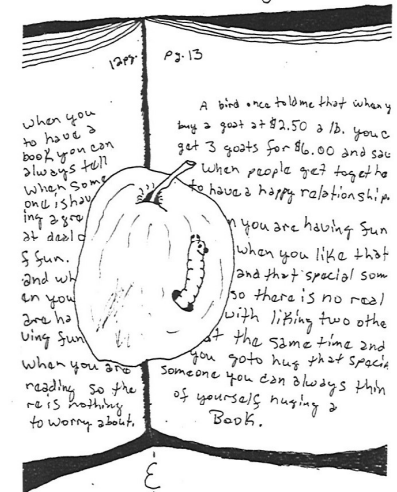 12pg.
when you
to have a
book you can
always tell
when some
one is hav
ing a gre
at deal o
f fun.
and wh
en you
are ha
ving fun
when you are
reading so the
re is nothing
to worry about.
Pg. 13
A bird once told me that when y
buy a goat at $2.50 a lb. you c
get 3 goats for $6.00 and sav
when people get togethe
to have a happy relationship.
n you are having fun
when you like that
and that special som
so there is no real
with liking two othe
at the same time and
you goto hug that specia
someone you can always thin
of yourself huging a
Book.